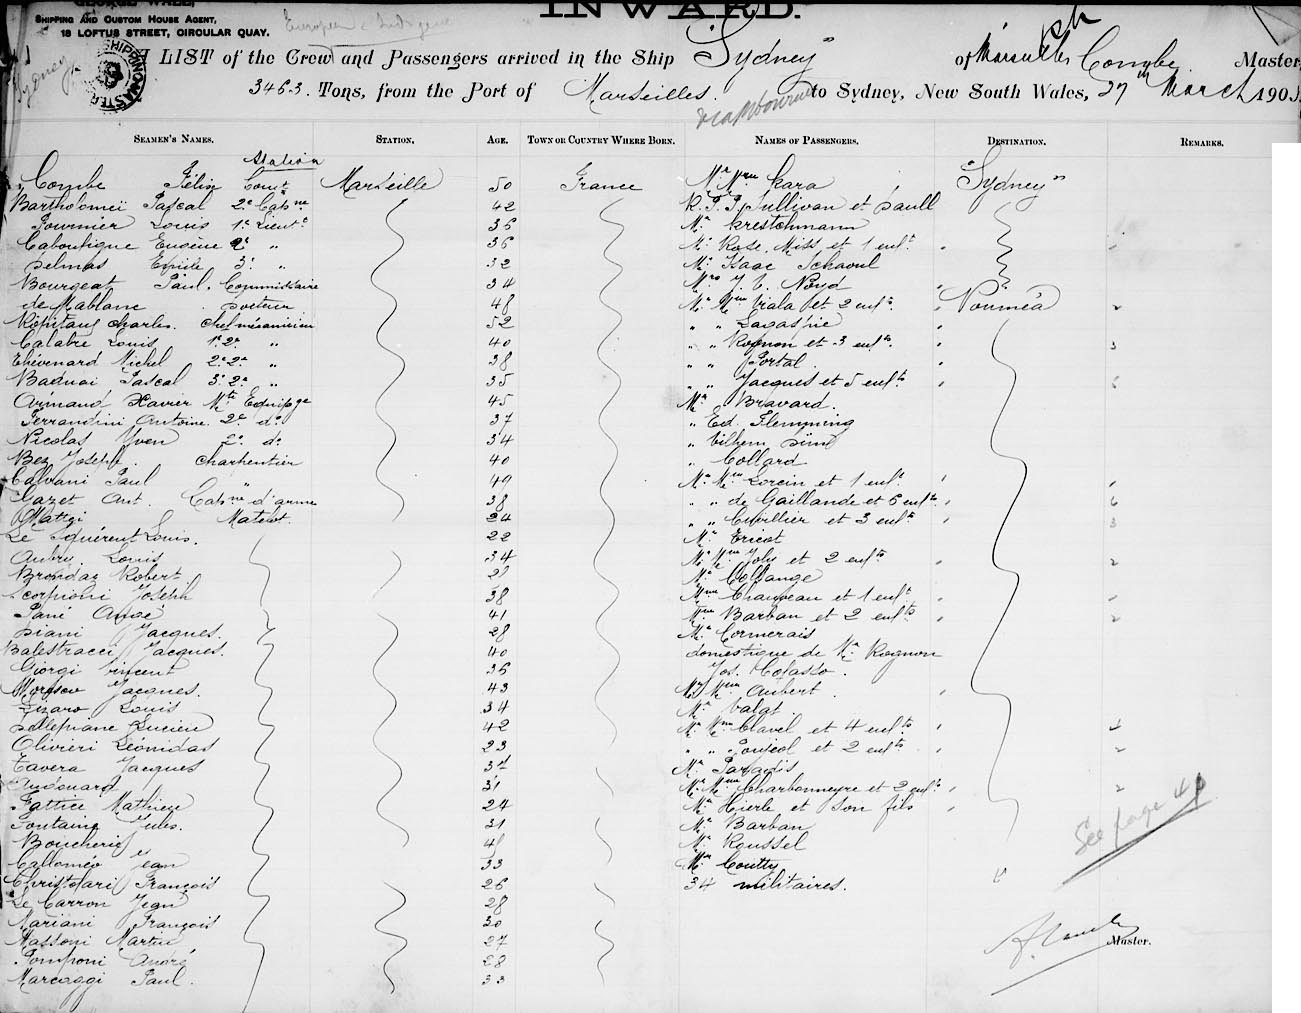 GEORGE WALL,
SHIPPING AND CUSTOM HOUSE AGENT,
18 LOFTUS STREET, CIRCULAR QUAY.
INWARD.
European & Indigene
SHIPPING MASTER
Sydney
A LIST of the Crew and Passengers arrived in the Ship "Sydney" of Marseilles Combe Master,
3463 Tons, from the Port of Marseilles. to Sydney, New South Wales, 27th March 190
via Melbourne
SEAMEN'S NAMES. STATION. AGE. TOWN OR COUNTRY WHERE BORN. NAMES OF PASSENGERS. DESTINATION. REMARKS.
Station
Combe Félix Comt Marseille 50 France Mr Mme Kara "Sydney"
Bartholomeï Pascal 2e Capne 42 R.P.P. Sullivan et Saull
Fournier Louis 1r Lieutt 36 Mr Krestchmann
Caboufigue Eugène 2e " 36 Mr Rose, Miss et 1 enft
Delmas Emile 3e " 32 Mr Isaac Schaoul
Bourgeat Paul. Commissaire 34 Mrs J. C. Noyd
de Mablanc Docteur 48 Mr Mme Viala et 2 enfts "Nouméa" 2
Kopitaus Charles. Chef mécanicien 52 " " Lagaspie
Calabre Louis 1r 2e " 40 " " Rognon et 3 enfts 3
Thévenard Michel 2e 2e " 38 " " Portal
Baduai Pascal 3e 2e " 35 " " Jacques et 5 enfts
Armand Xavier Mtre Equipge 45 Mr Bravard.
Ferrandini Antoine. 2e do 37 " Ed. Flemming
Nicolas Yven 2e do 34 " Vilhem
Bez Joseph. Charpentier 40 " Collard
Calvani Paul " 49 Mr Mme Lorcin et 1 enft
Gazet Ant. Capne d'arme 38 " " de Gaillande et 6 enfts 6
Mattei Matelot. 24 " " Cuvillier et 3 enfts 3
Le Quérent Louis. 22 Mr Tricot
Aubry Louis 34 Mr Mme Joly et 2 enfts 2
Brondaz Robert Mr Collange
Scorpioni Joseph 38 Mme Chauveau et 1 enft
Pané Ange 41 Mme Barbau et 2 enfts 2
Diani Jacques. 28 Mr Cormerais
Balestracci Jacques. 40 domestique de Mr Rognon
Giorgi Vincent 36 Jos. Colasso.
Jacques. 43 Mr Mme Aubert
Lizaro Louis 34 Mr Valat
Dellepiane Lucien 42 Mr Mme Clavel et 4 enfts 4
Olivieri Léonidas 23 " " Poujeol et 2 enfts 2
Tavera Jacques 31 Mr Paradis
Audouard 31 Mr Mme Charbonneyre et 2 enfts 2
Fattice Mathieu 24 Mr Hierle et son fils
Fontaine Jules. 31 Mr Barbau
Boucherie Mr Roussel
Calloméo Jean 33 Mr Coutty
Christofari François 26 34 militaires.
Le Carron Jean 28
Mariani François 30
Massoni Martin 27
Pomponi André 28
Marcaggi Paul. 33
See page 41
Master.